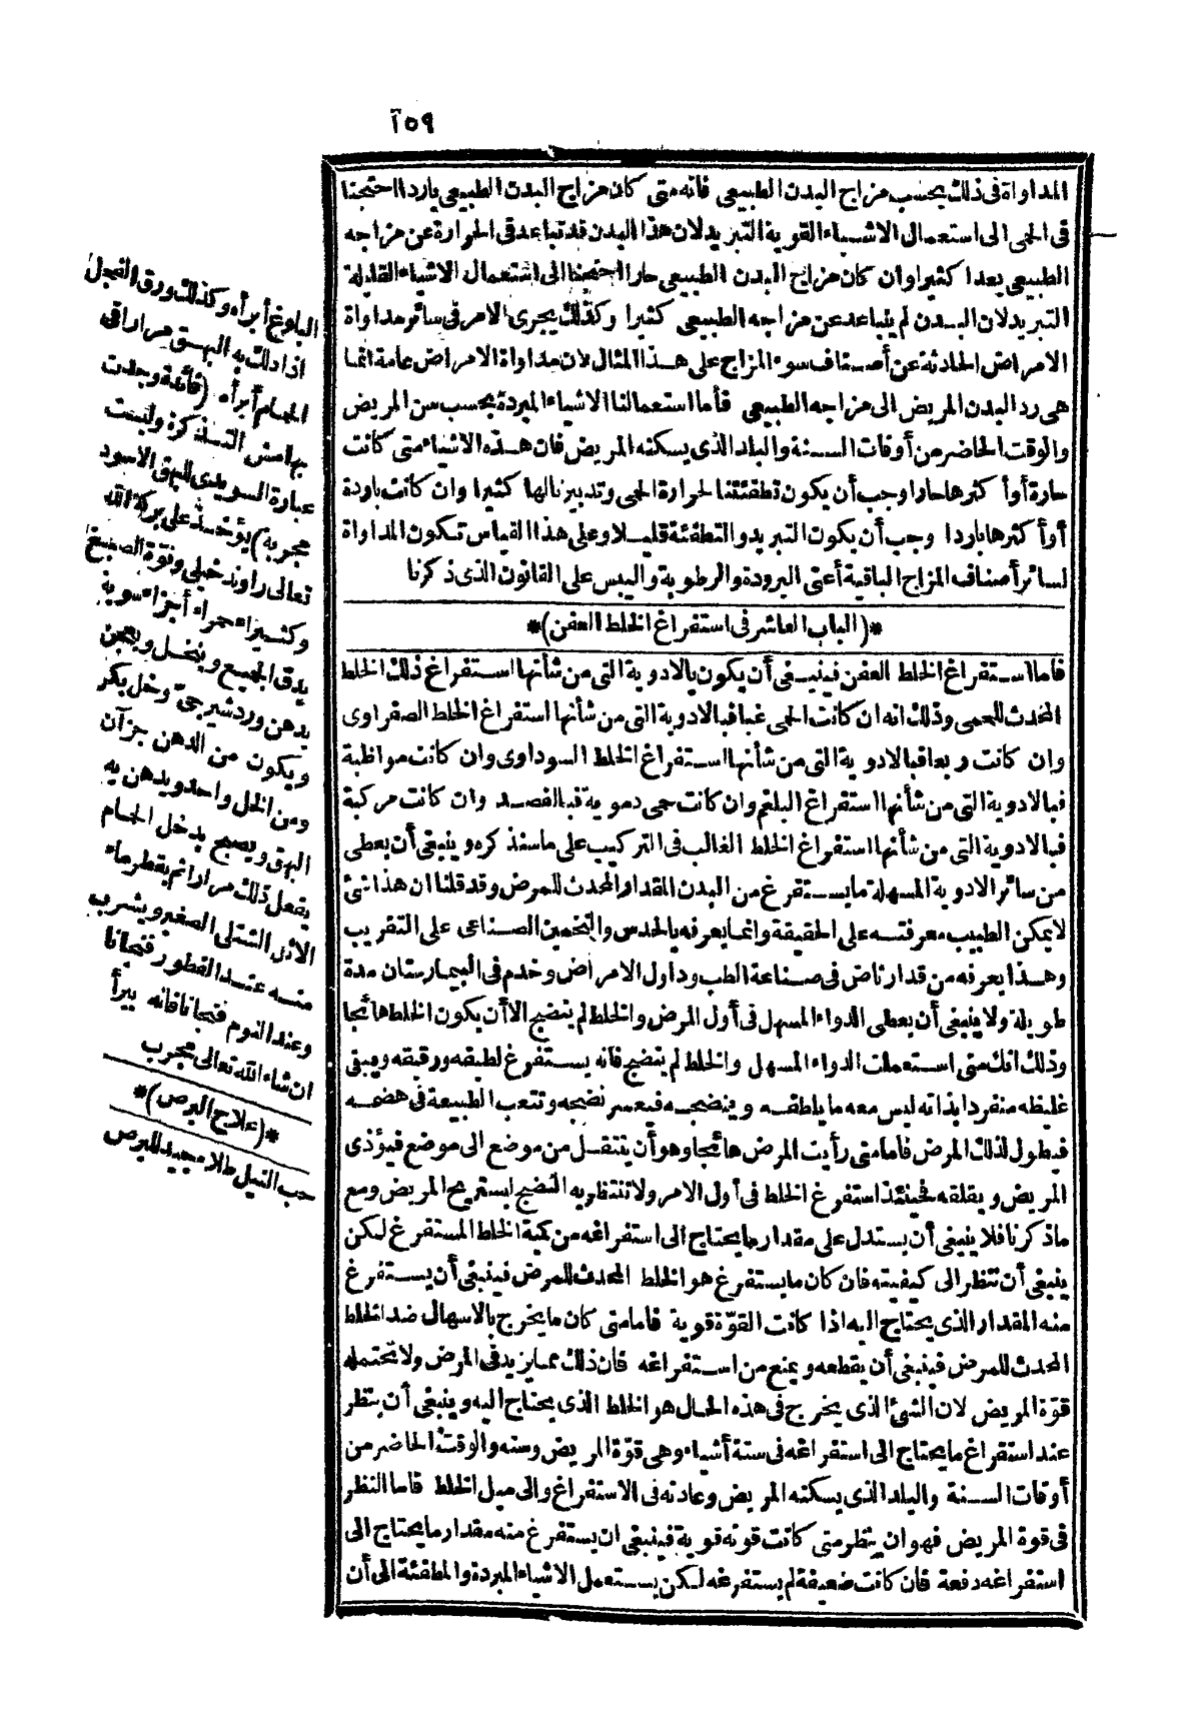 ١٥٩
المداواة فى ذلك بحسب مزاج البدن الطبيعى فانه متى كان مزاج البدن الطبيعى باردا احتجنا
فى الحمى الى استعمال الاشياء القوية التبريد لان هذا البدن قد تباعد فى الحرارة عن مزاجه
الطبيعى بعدا كثيرا وان كان مزاج البدن الطبيعى حارا احتجنا الى استعمال الاشياء القليلة
التبريد لان البدن لم يتباعد عن مزاجه الطبيعى كثيرا وكذلك يجرى الامر فى سائر مداواة
الامراض الحادثة عن أصناف سوء المزاج على هذا المثال لان مداواة الامراض عامة انما
هى رد البدن المريض الى مزاجه الطبيعى فأما استعمالنا الاشياء المبردة بحسب سن المريض
والوقت الحاضر من أوقات السنة والبلد الذى يسكنه المريض فان هذه الاشياء متى كانت
حارة أو أكثرها حارا وجب أن يكون تطفئتنا لحرارة الحمى وتدبيرنا لها كثيرا وان كانت باردة
أو أكثرها باردا وجب أن يكون التبريد والتطفئة قليلا وعلى هذا القياس تكون المداواة
لسائر أصناف المزاج الباقية أعنى البرودة والرطوبة واليبس على القانون الذى ذكرنا
*(الباب العاشر فى استفراغ الخلط العفن)*
فاما استفراغ الخلط العفن فينبغى أن يكون بالادوية التى من شأنها استفراغ ذلك الخلط
المحدث للحمى وذلك انه ان كانت الحمى غبا فبالادوية التى من شأنها استفراغ الخلط الصفراوى
وان كانت ربعا فبالادوية التى من شأنها استفراغ الخلط السوداوى وان كانت مواظبة
فبالادوية التى من شأنها استفراغ البلغم وان كانت حمى دموية فبالفصد وان كانت مركبة
فبالادوية التى من شأنها استفراغ الخلط الغالب فى التركيب على ما سنذكره وينبغى أن يعطى
من سائر الادوية المسهلة ما يستفرغ من البدن المقدار المحدث للمرض وقد قلنا ان هذا شئ
لا يمكن الطبيب معرفته على الحقيقة وانما يعرفه بالحدس والتخمين الصناعى على التقريب
وهذا يعرفه من قد ارتاض فى صناعة الطب وداول الامراض وخدم فى البيمارستان مدة
طويلة ولا ينبغى أن يعطى الدواء المسهل فى أول المرض والخلط لم ينضج الا أن يكون الخلط هائجا
وذلك انك متى استعملت الدواء المسهل والخلط لم ينضج فانه يستفرغ لطيفه ورقيقه ويبقى
غليظه منفردا بذاته ليس معه ما يلطفه وينضجه فيعسر نضجه وتتعب الطبيعة فى هضمه
فيطول لذلك المرض فاما متى رأيت المرض هائجا وهو أن ينتقل من موضع الى موضع فيؤذى
المريض ويقلقه فحينئذ استفرغ الخلط فى أول الامر ولا تنتظر به النضج ليستريح المريض ومع
ما ذكرنا فلا ينبغى أن يستدل على مقدار ما يحتاج الى استفراغه من كمية الخلط المستفرغ لكن
ينبغى أن تنظر الى كيفيته فان كان ما يستفرغ هو الخلط المحدث للمرض فينبغى أن يستفرغ
منه المقدار الذى يحتاج اليه اذا كانت القوّة قوية فاما متى كان ما يخرج بالاسهال ضد الخلط
المحدث للمرض فينبغى أن يقطعه ويمنع من استفراغه فان ذلك مما يزيد فى المرض ولا تحتمله
قوّة المريض لان الشئ الذى يخرج فى هذه الحال هو الخلط الذى يحتاج اليه وينبغى أن ينظر
عند استفراغ ما يحتاج الى استفراغه فى ستة أشياء وهى قوّة المريض وسنه والوقت الحاضر من
أوقات السنة والبلد الذى يسكنه المريض وعادته فى الاستفراغ والى ميل الخلط فاما النظر
فى قوة المريض فهو ان ينظر متى كانت قوته قوية فينبغى ان يستفرغ منه مقدار ما يحتاج الى
استفراغه دفعة فان كانت ضعيفة لم يستفرغه لكن يستعمل الاشياء المبردة والمطفئة الى أن
البلوغ أبرأه وكذلك ورق الفجل
اذا دلك به البهق مرارا فى
الحمام أبرأه (فائدة وجدت
بهامش التذكرة وليست
عبارة السويدى للبهق الاسود
مجربة) يؤخذ على بركة الله
تعالى راوند خيلى وفوّة الصبغ
وكثيراء حمراء أجزاء سوية
يدق الجميع وينخل ويعجن
بدهن ورد شيرجىّ وخل بكر
ويكون من الدهن جزآن
ومن الخل واحد ويدهن به
البهق ويصبح يدخل الحمام
يفعل ذلك مرارا ثم يقطر ماء
الاثل الصغير ويشرب
منه عند الفطور فنجانا
وعند النوم فنجانا فانه يبرأ
ان شاء الله تعالى مجرب
*(علاج البرص)*
حب النيل طلاء جيد للبرص